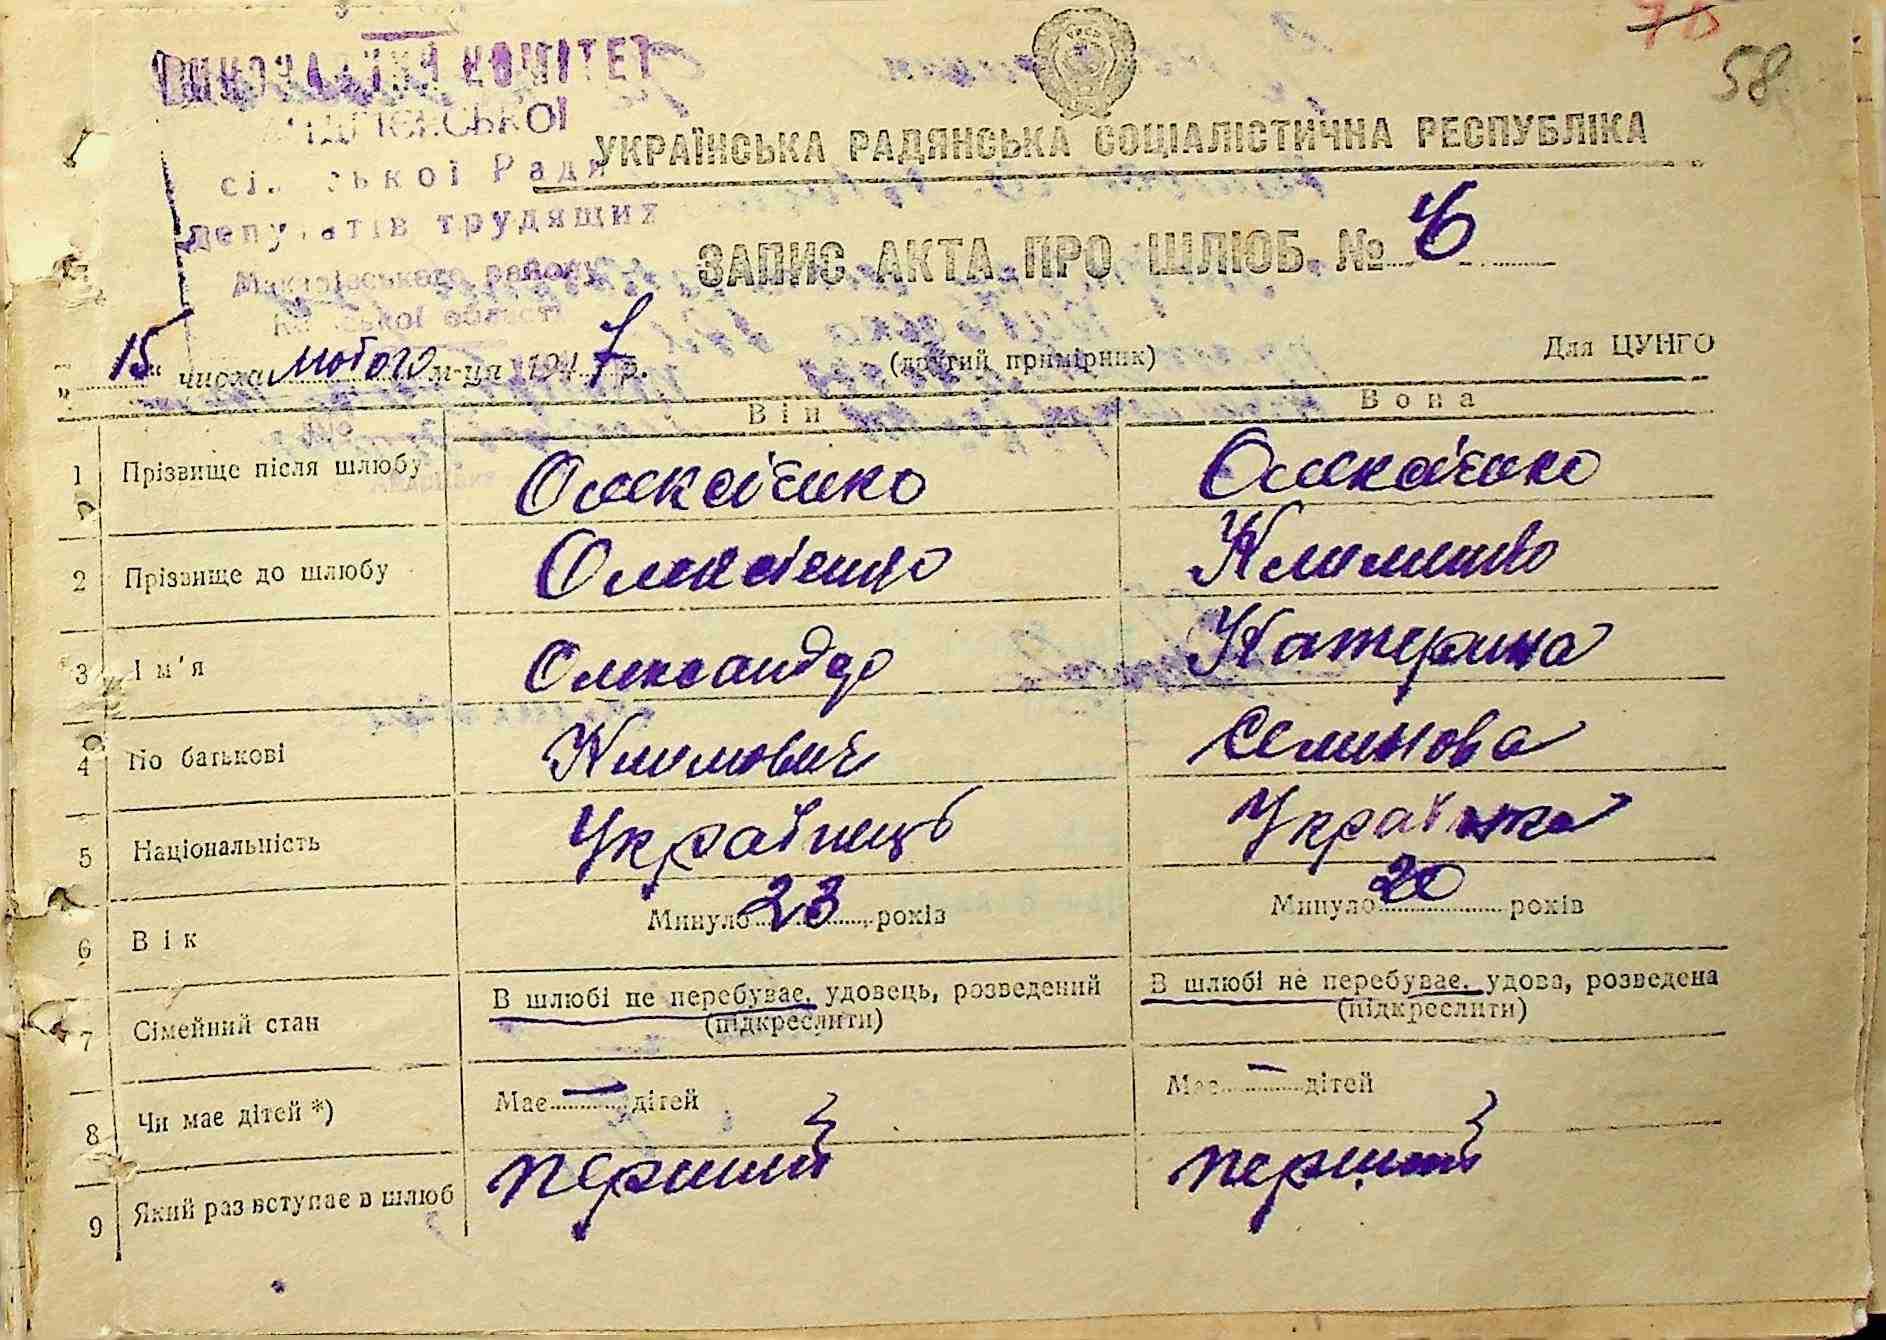 78
58
ВИКОНАВЧИЙ КОМІТЕТ
сільської Ради
депутатів трудящих
Макарівського району
Київської області
УКРАЇНСЬКА РАДЯНСЬКА СОЦІАЛІСТИЧНА РЕСПУБЛІКА
ЗАПИС АКТА ПРО ШЛЮБ № 6
„15“ числа лютого м-ця 1947 р. (другий примірник) Для ЦУНГО
Він Вона
1 Прізвище після шлюбу Олексієнко Олексієнко
2 Прізвище до шлюбу Олексієнко Клименко
3 Ім'я Олександр Катерина
4 По батькові Климович Семинова
5 Національність Українець Українка
6 Вік Минуло 23 років Минуло 20 років
7 Сімейний стан В шлюбі не перебуває, удовець, розведений В шлюбі не перебуває, удова, розведена
(підкреслити) (підкреслити)
8 Чи має дітей *) Має — дітей Має — дітей
9 Який раз вступає в шлюб перший перший